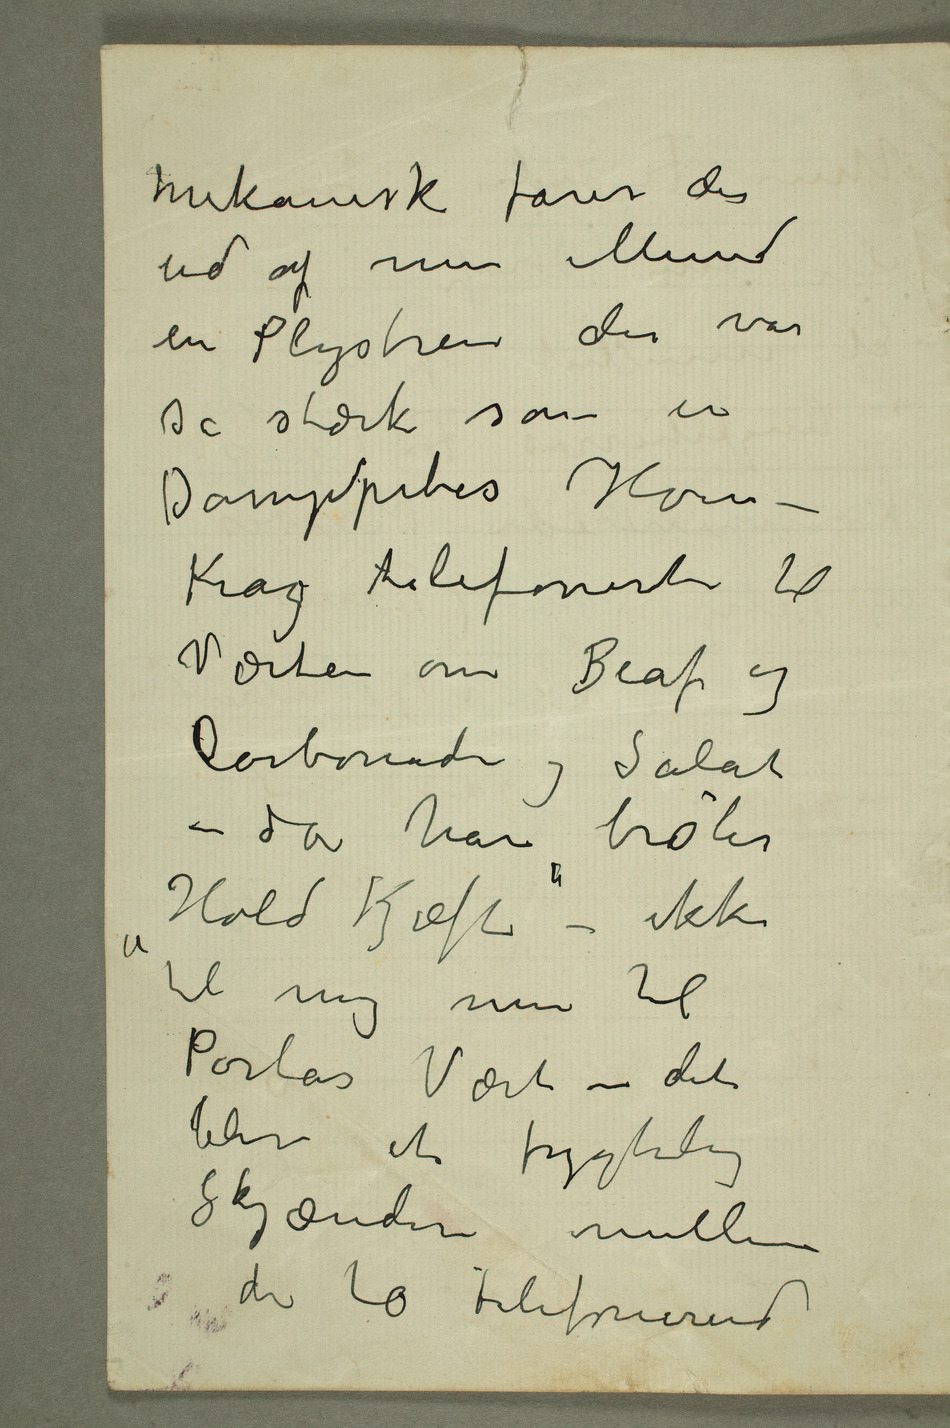 mekanisk farer der
ud af min Mund
en Plystren der var
så stærk som en
Damppibes Hvin –
Krag telefonerte til
Værten om Beaf og
Carbonade og Salat
– da han brøler
„Hold Kjæft" – ikke
til mig men til
Portas Vært – det
blir et frygtelig
Skjænderi mellem
de to telefonerend